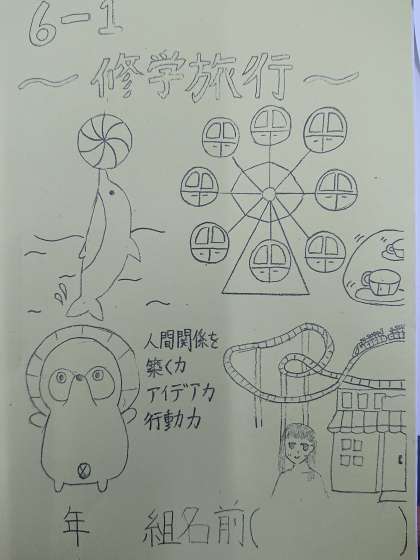 6-1
～修学旅行～
人間関係を
築く力
アイデア力
行動力
年 組名前( )